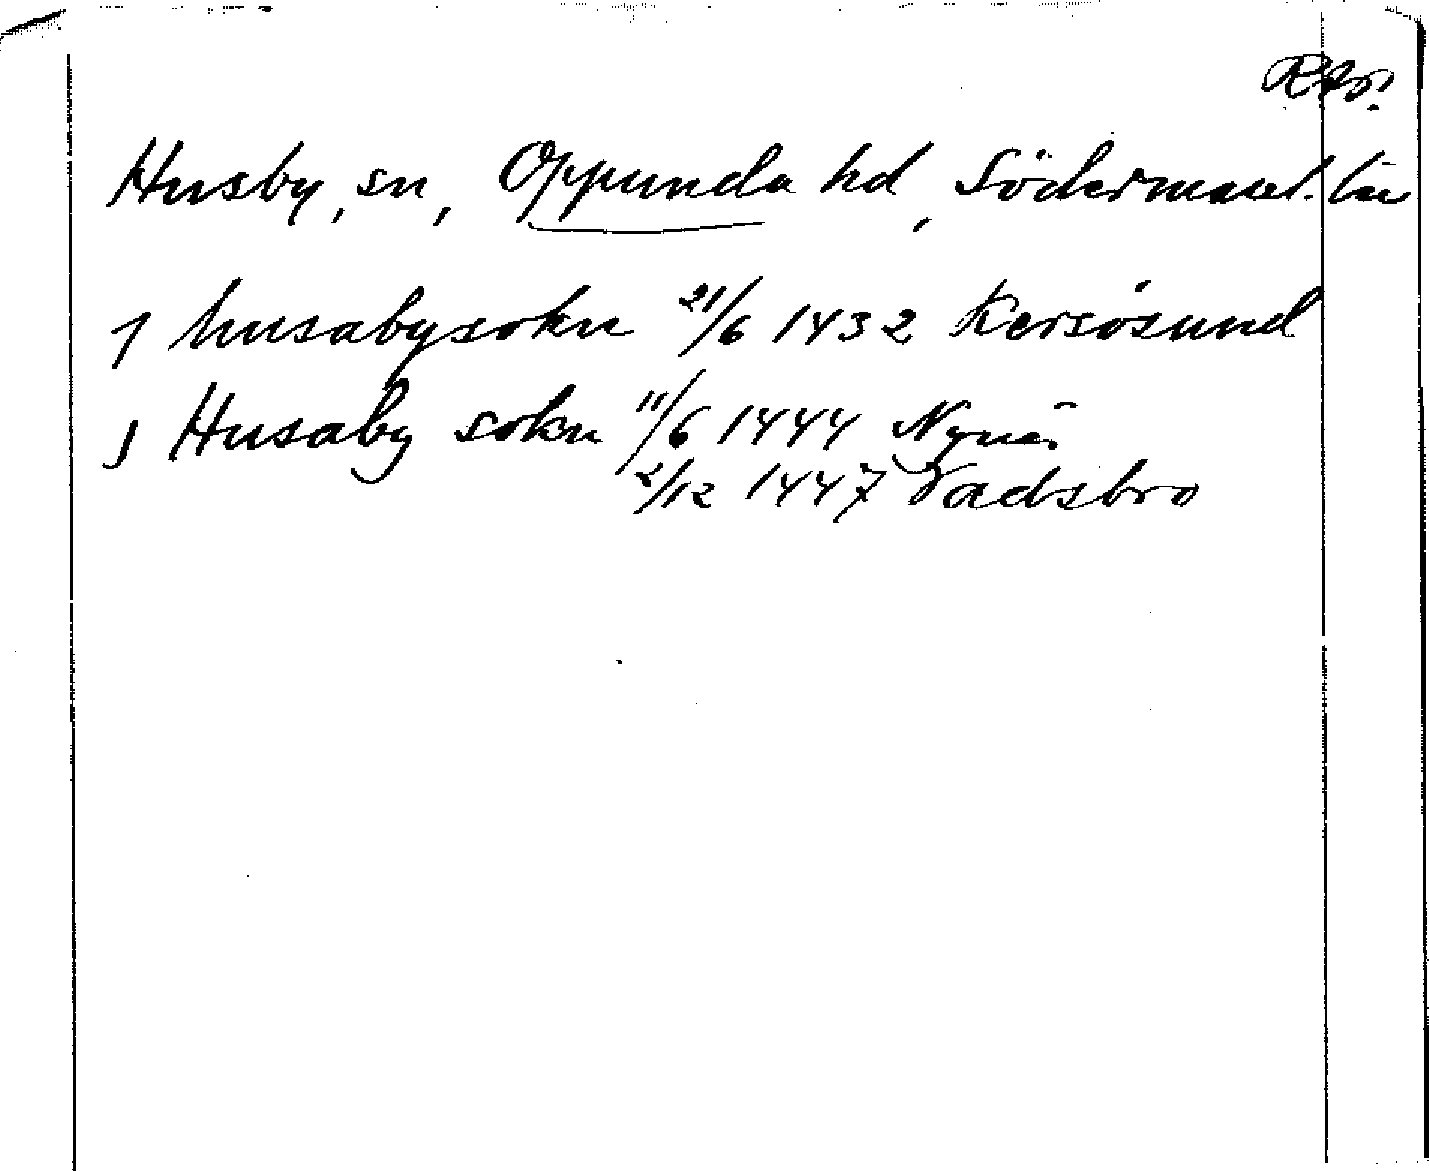 Husby, sn, Oppunda hd, Södermanl. län
J husabysokn 21/6 1432 Kersösund
J Husaby sokn 11/6 1444 Nynäs
2/12 1447 Vadsbro